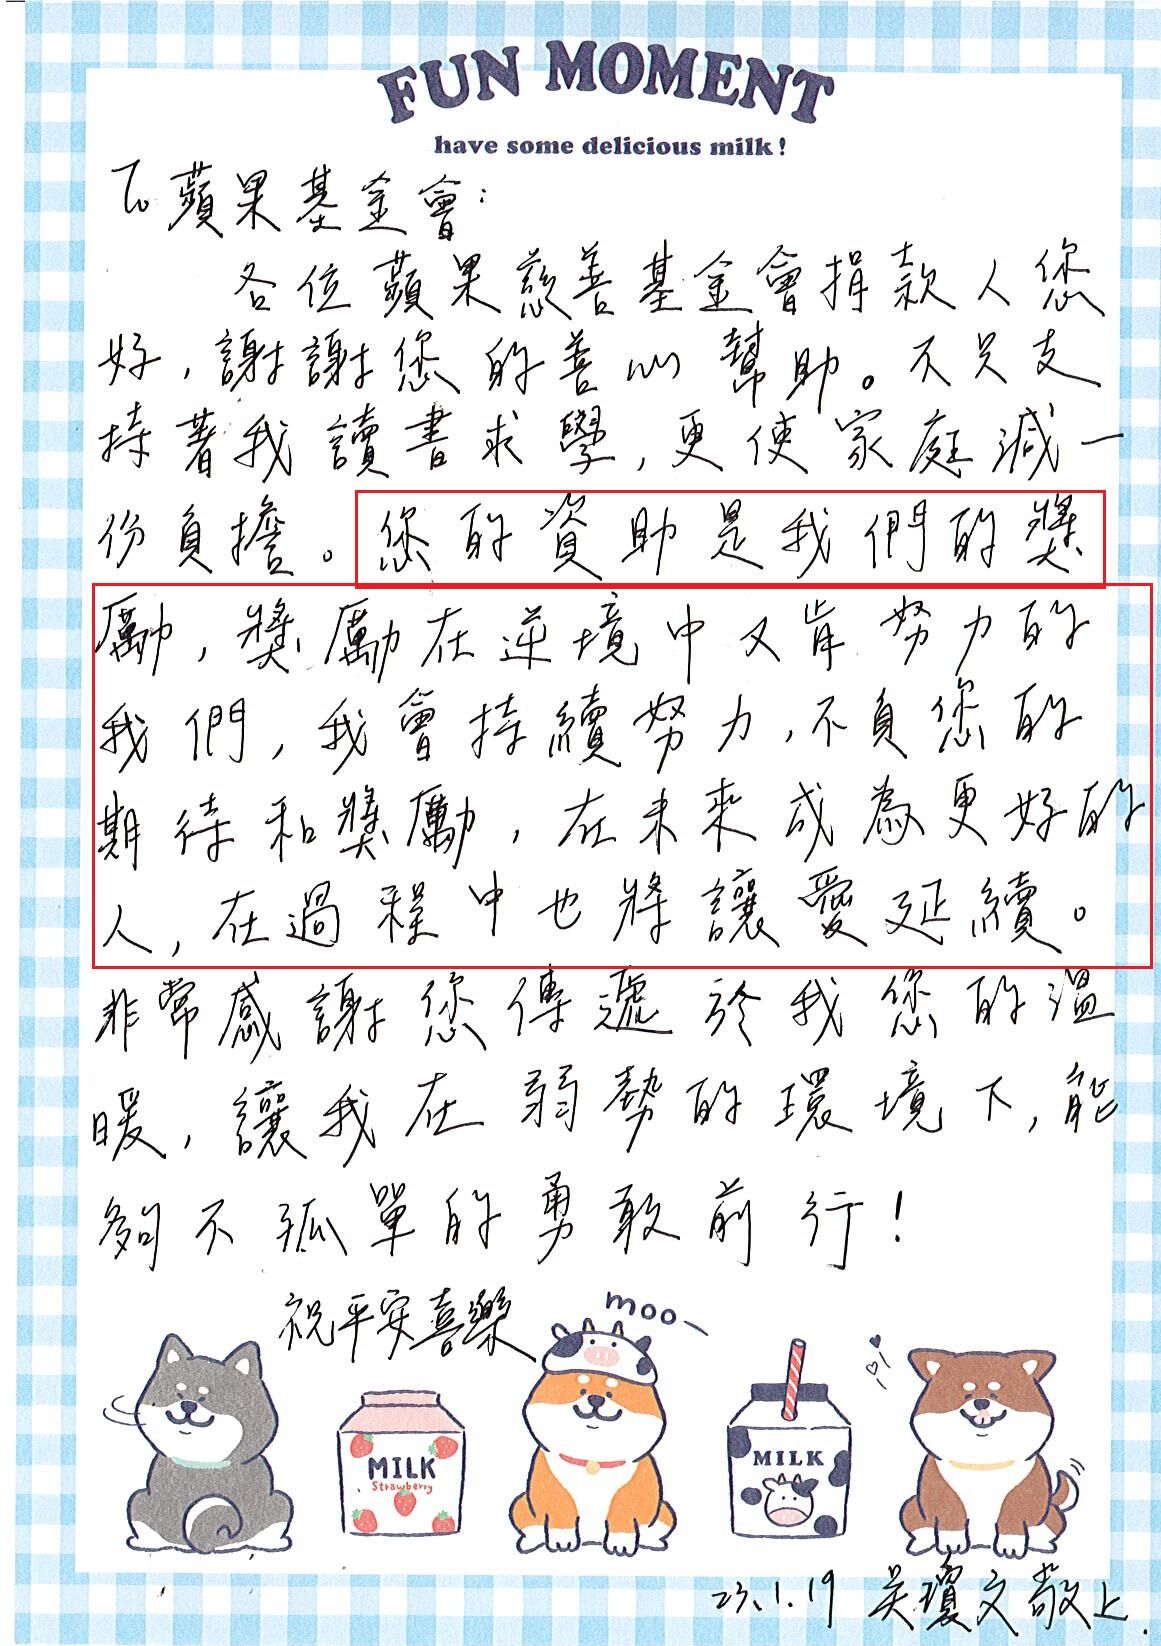 FUN MOMENT
have some delicious milk!
To 蘋果基金會:
各位蘋果慈善基金會捐款人您
好,謝謝您的善心幫助。不只支
持著我讀書求學,更使家庭減一
份負擔。您的資助是我們的獎
勵,獎勵在逆境中又肯努力的
我們,我會持續努力,不負您的
期待和獎勵,在未來成為更好的
人,在過程中也將讓愛延續。
非常感謝您傳遞於我您的溫
暖,讓我在弱勢的環境下,能
夠不孤單的勇敢前行!
祝平安喜樂
moo
MILK
Strawberry
MILK
23.1.19 吴瓊文敬上.